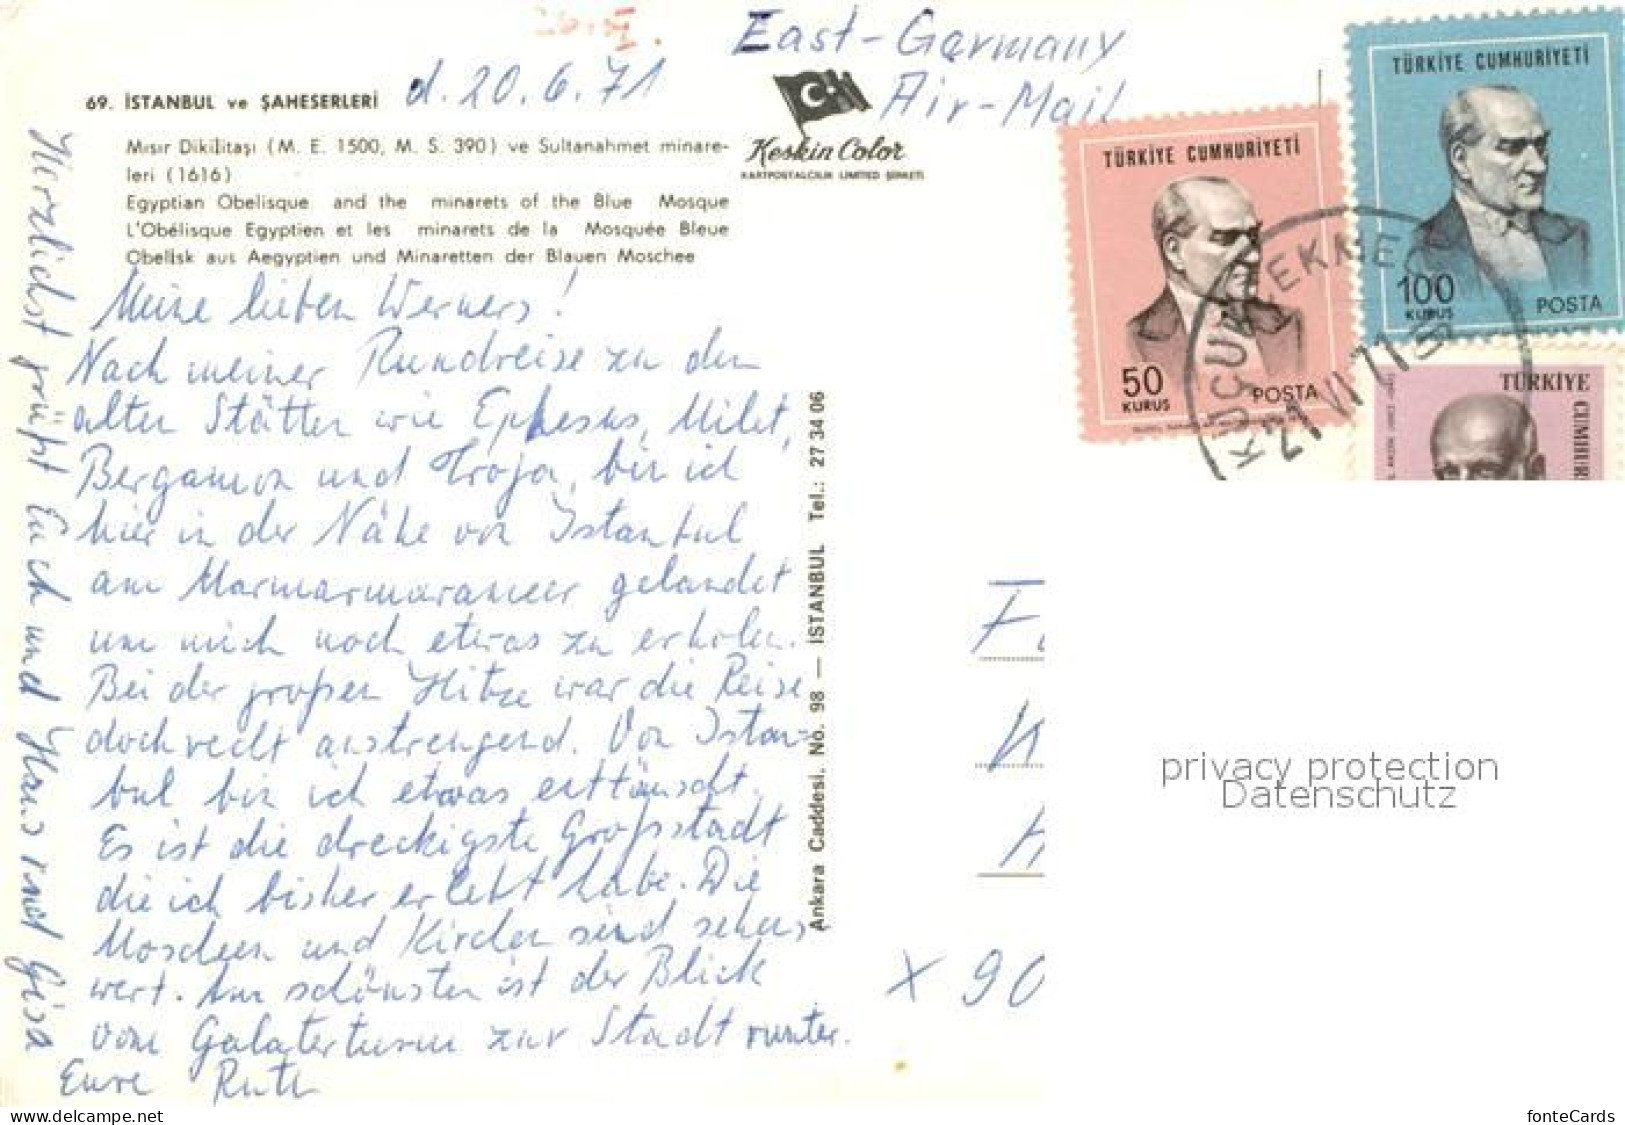 26.6.
East-Germany
Air-Mail
d. 20.6.71
69. İSTANBUL ve ŞAHESERLERİ
Mısır Dikilitaşı (M. E. 1500, M. S. 390) ve Sultanahmet minare-
leri (1616)
Egyptian Obelisque and the minarets of the Blue Mosque
L'Obélisque Egyptien et les minarets de la Mosquée Bleue
Obelisk aus Aegyptien und Minaretten der Blauen Moschee
Keskin Color
KARTPOSTALCILIK LIMITED ŞIRKETI
Meine lieben Werners!
Nach meiner Rundreise zu den
alten Stätten wie Ephesus, Milet,
Bergamon und Troja, bin ich
hier in der Nähe von Istanbul
am Marmarmarameer gelandet
um mich noch etwas zu erholen.
Bei der großen Hitze war die Reise
doch recht anstrengend. Von Istan-
bul bin ich etwas enttäuscht.
Es ist die dreckigste Großstadt
die ich bisher erlebt habe. Die
Moscheen und Kirchen sind sehens-
wert. Am schönsten ist der Blick
vom Galaterturm zur Stadt runter.
Eure Ruth
Herzlichst grüßt Euch und Hans und Gisa
Ankara Caddesi. No. 98 — İSTANBUL Tel.: 27 34 06
TÜRKİYE CUMHURİYETİ
50
KURUS
POSTA
TÜRKİYE CUMHURİYETİ
100
KURUS
POSTA
TÜRKİYE CUMHUR
KÜÇÜKÇEKMECE
21 VI 71
X 90
privacy protection
Datenschutz
www.delcampe.net
fonteCards